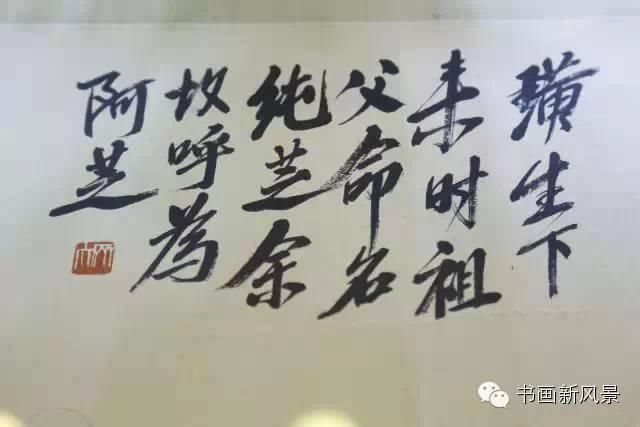 璜生下
来时祖
父命名
纯芝余
故呼为
阿芝
书画新风景